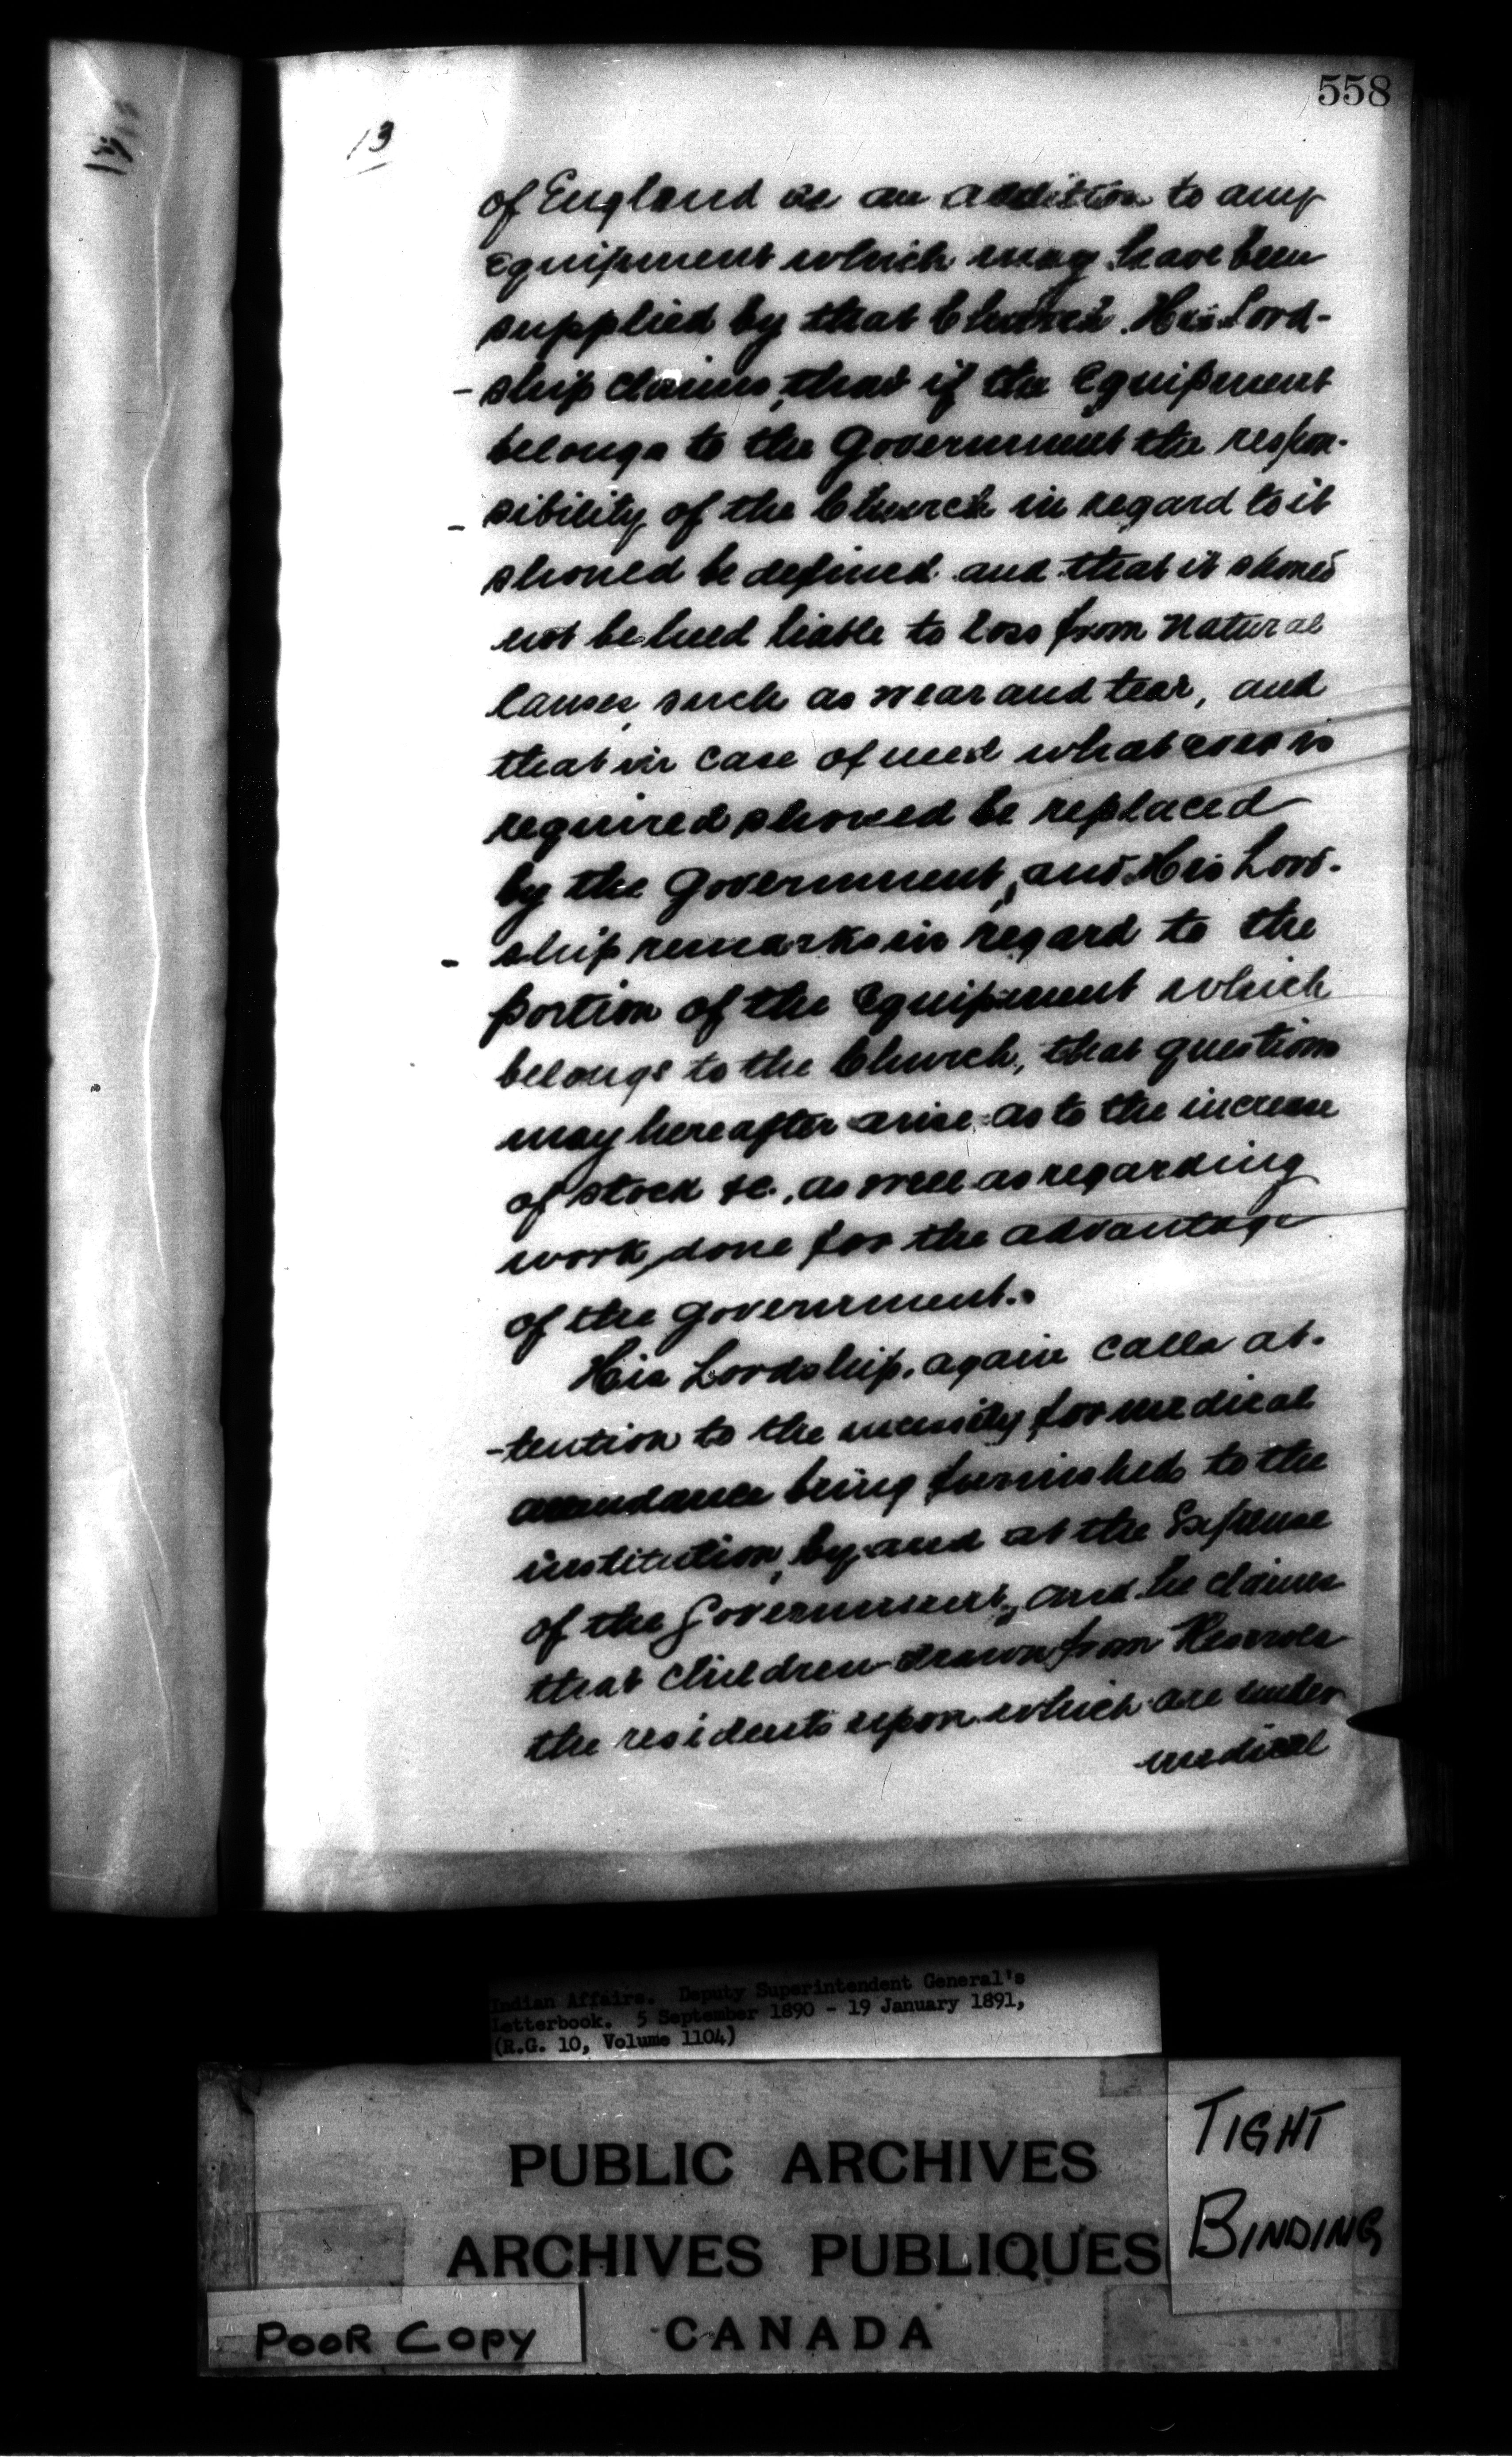 558
13
of England as an addition to any
equipment which may have been
supplied by that Church. His Lord-
-ship claims, that if the equipment
belongs to the Government the respon-
-sibility of the Church in regard to it
should be defined and that it should
not be held liable to loss from natural
causes, such as wear and tear, and
that in case of need what ever is
required should be replaced
by the Government, and His Lord-
-ship remarks in regard to the
portion of the equipment which
belongs to the Church, that questions
may hereafter arise as to the increase
of stock &c., as well as regarding
work done for the advantage
of the Government.
His Lordship again calls at-
-tention to the necessity for medical
attendance being furnished to the
institution, by and at the Expense
of the Government, and he claims
that children drawn from Reserves
the residents upon which are under
medical
Indian Affairs. Deputy Superintendent General's
Letterbook. 5 September 1890 - 19 January 1891,
(R.G. 10, Volume 1104)
PUBLIC ARCHIVES
ARCHIVES PUBLIQUES
CANADA
TIGHT
BINDING
POOR COPY